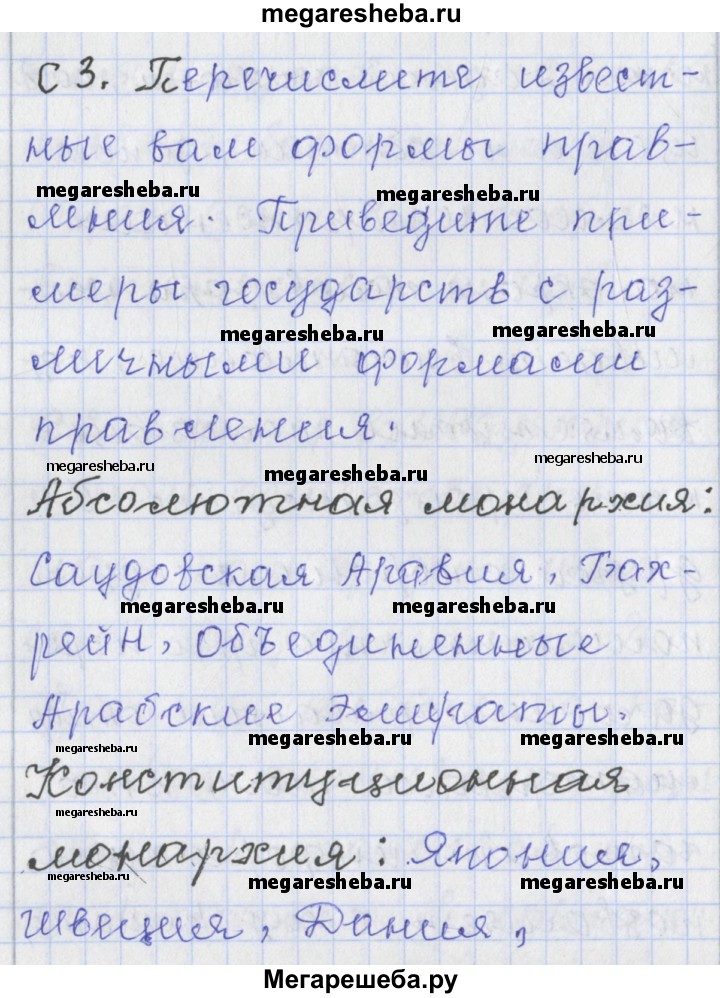 megaresheba.ru
С 3. Перечислите извест-
ные вам формы прав-
megaresheba.ru megaresheba.ru
ления. Приведите при-
меры государств с раз-
megaresheba.ru megaresheba.ru
личными формами
правления.
megaresheba.ru megaresheba.ru megaresheba.ru
Абсолютная монархия:
Саудовская Аравия, Бах-
megaresheba.ru megaresheba.ru
рейн, Объединенные
Арабские Эмираты.
megaresheba.ru megaresheba.ru megaresheba.ru
Конституционная
megaresheba.ru
монархия: Япония,
megaresheba.ru megaresheba.ru megaresheba.ru
Швеция, Дания,
Мегарешеба.ру